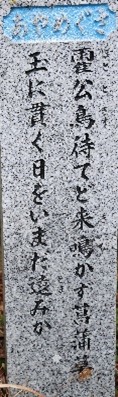 あやめぐさ
霍公鳥待てど来鳴かず菖蒲草
玉に貫く日をいまだ遠みか